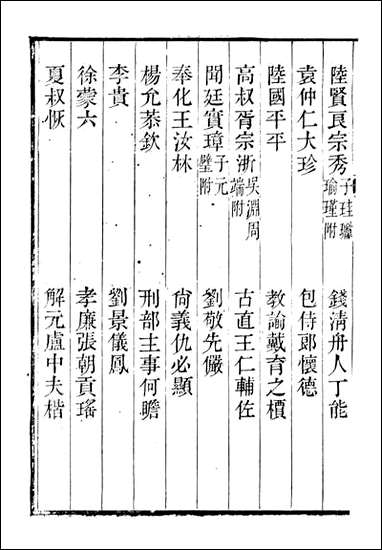 陸賢良宗秀 子珪璥瑜瑾附 錢清舟人丁能
袁仲仁大珍 包侍郎懷德
陸國平平 教諭戴育之櫝
高叔胥宗浙 吳淵周端附 古直王仁輔佐
聞廷實璋 子元璧附 劉敬先儼
奉化王汝林 尙義仇必顯
楊允恭欽 刑部主事何瞻
李貴 劉景儀鳳
徐蒙六 孝廉張朝貢瑤
夏叔恢 解元盧中夫楷